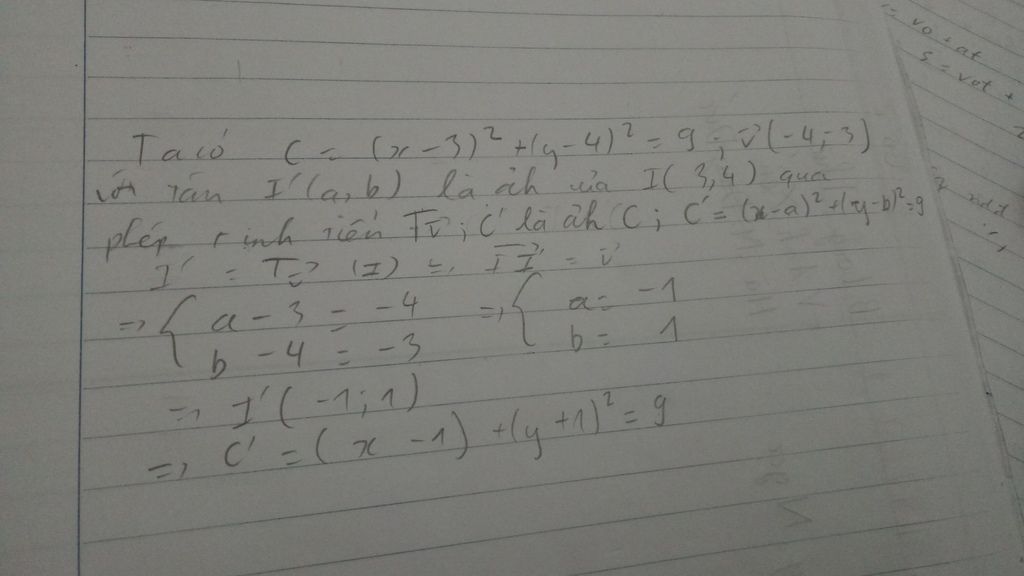 Ta có C = (x - 3)² + (y - 4)² = 9 ; v⃗ (-4; -3)
với tân I'(a, b) là ảh của I( 3, 4) qua
phép tịnh tiến Tv⃗ ; C' là ảh C ; C' = (x-a)² + (y-b)² = 9
I' = Tv⃗ (I) => II'⃗ = v⃗
=> { a - 3 = -4 => { a = -1
b - 4 = -3 b = 1
=> I' ( -1 ; 1 )
=> C' = ( x - 1 ) + (y + 1)² = 9
= vo + at
s = vot +